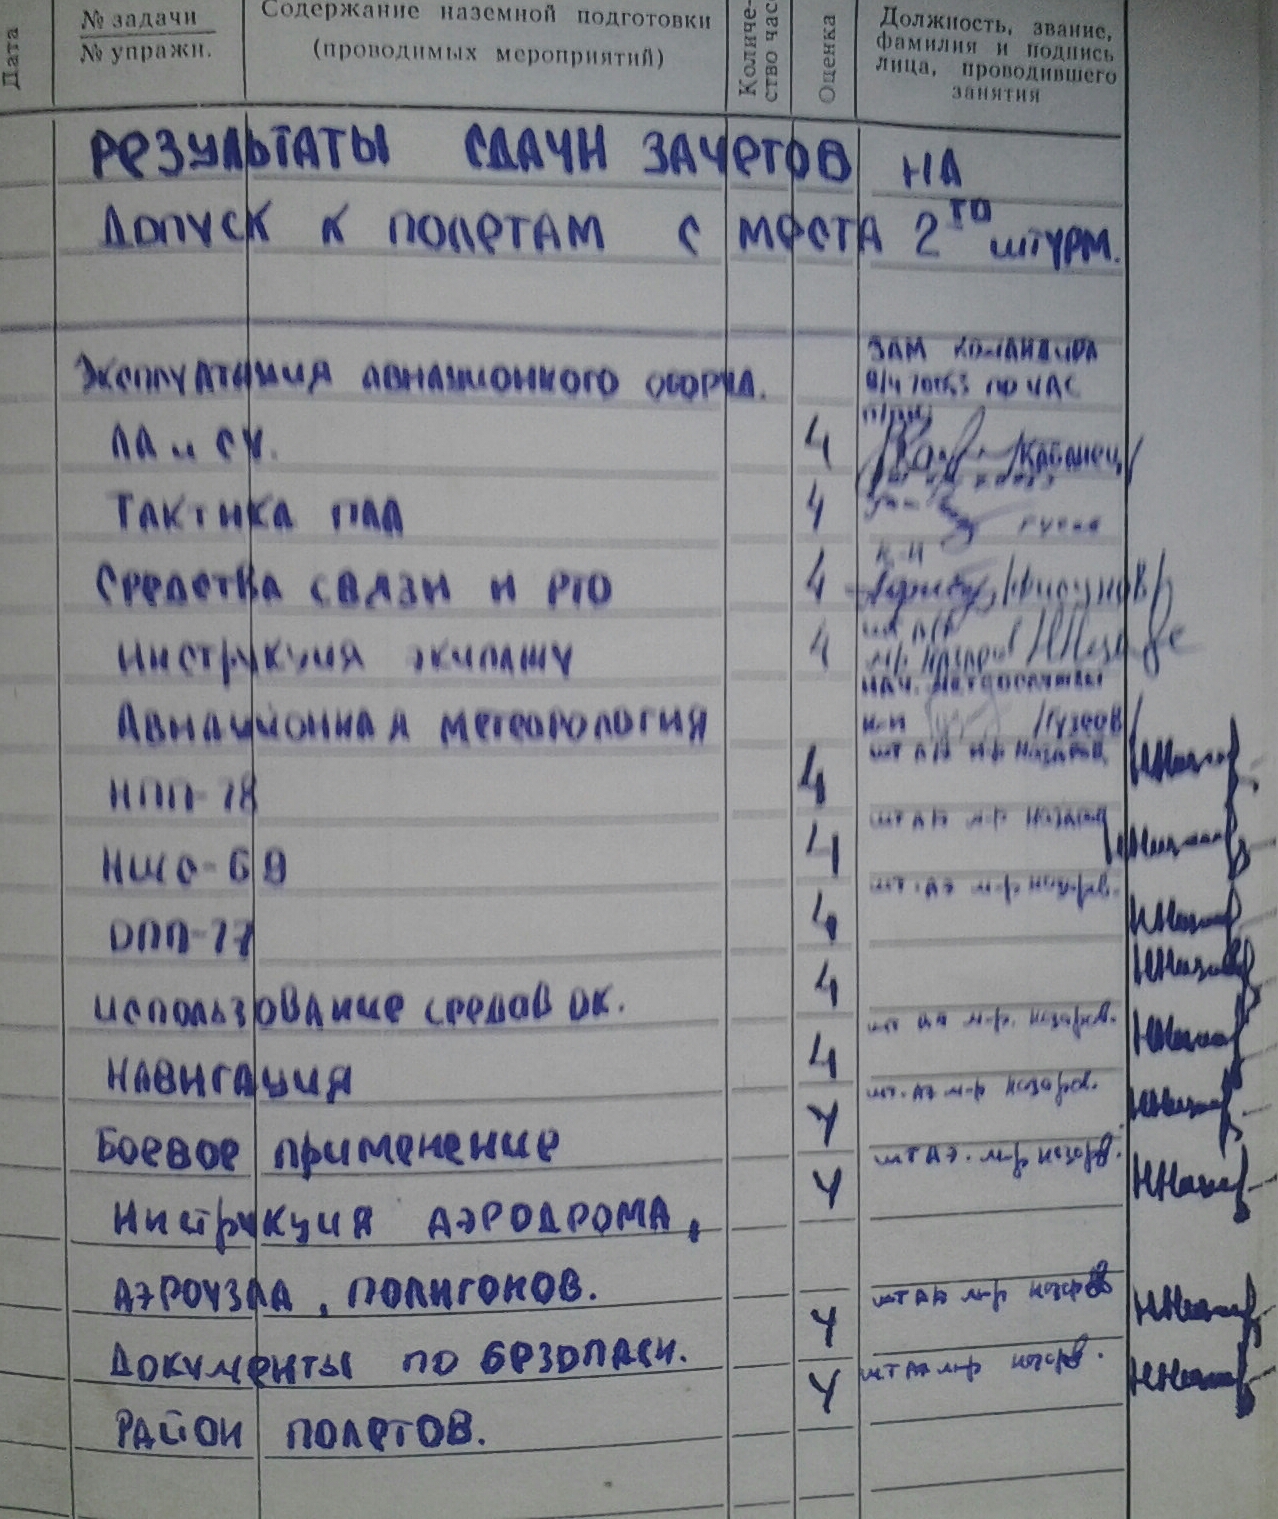 Дата
№ задачи
№ упражн.
Содержание наземной подготовки
(проводимых мероприятий)
Количе-
ство час
Оценка
Должность, звание,
фамилия и подпись
лица, проводившего
занятия
РЕЗУЛЬТАТЫ СДАЧИ ЗАЧЕТОВ НА
ДОПУСК К ПОЛЕТАМ С МЕСТА 2го ШТУРМ.
ЗАМ КОМАНДИРА
Эксплуатация авиационного оборуд.
В/Ч ПО ИАС
ЛА и СУ. 4 /Кабанец/
Тактика ПЛА 4
К-Н
Средства связи и РТО 4
Инструкция экипажу 4
НАЧ. МЕТЕОСЛУЖБЫ
Авиационная метеорология К-Н /Гузеев/
ШТ АЭ М-Р НАЗАРОВ
НПП-78 4
ШТ АЭ М-Р НАЗАРОВ
НШС-69 4
ШТ. АЭ М-Р НАЗАРОВ.
ОПП-77 4
Использование средств ОК. 4
ШТ АЭ М-Р. НАЗАРОВ.
НАВИГАЦИЯ 4
ШТ. АЭ М-Р НАЗАРОВ.
Боевое применение 4
ШТ АЭ. М-Р НАЗАРОВ.
Инструкция АЭРОДРОМА, 4
АЭРОУЗЛА, ПОЛИГОНОВ.
ШТ АЭ М-Р НАЗАРОВ
Документы по безопасн. 4
ШТ АЭ М-Р НАЗАРОВ.
РАЙОН ПОЛЕТОВ. 4